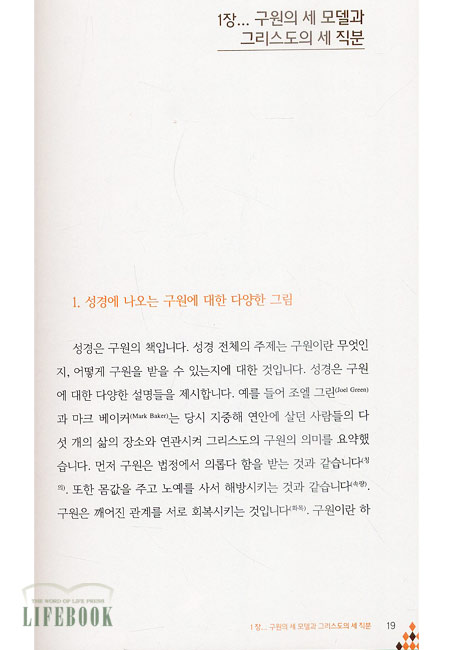 1장... 구원의 세 모델과
그리스도의 세 직분
1. 성경에 나오는 구원에 대한 다양한 그림
성경은 구원의 책입니다. 성경 전체의 주제는 구원이란 무엇인
지, 어떻게 구원을 받을 수 있는지에 대한 것입니다. 성경은 구원
에 대한 다양한 설명들을 제시합니다. 예를 들어 조엘 그린(Joel Green)
과 마크 베이커(Mark Baker)는 당시 지중해 연안에 살던 사람들의 다
섯 개의 삶의 장소와 연관시켜 그리스도의 구원의 의미를 요약했
습니다. 먼저 구원은 법정에서 의롭다 함을 받는 것과 같습니다(칭
의). 또한 몸값을 주고 노예를 사서 해방시키는 것과 같습니다(속량).
구원은 깨어진 관계를 서로 회복시키는 것입니다(화목). 구원이란 하
THE WORD OF LIFE PRESS
LIFEBOOK
1장... 구원의 세 모델과 그리스도의 세 직분 19